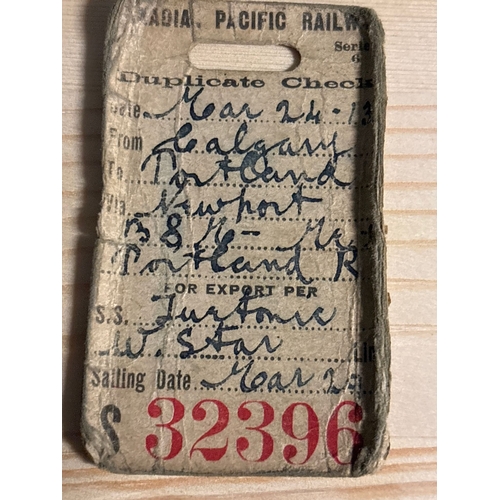 ADIAN PACIFIC RAILW
Series
6
Duplicate Check
Date Mar 24-13
From Calgary
To Portland
Via Newport
B & M - Me
Portland R
FOR EXPORT PER
S.S. Teutonic
W. Star Lin
Sailing Date Mar 2
S 32396